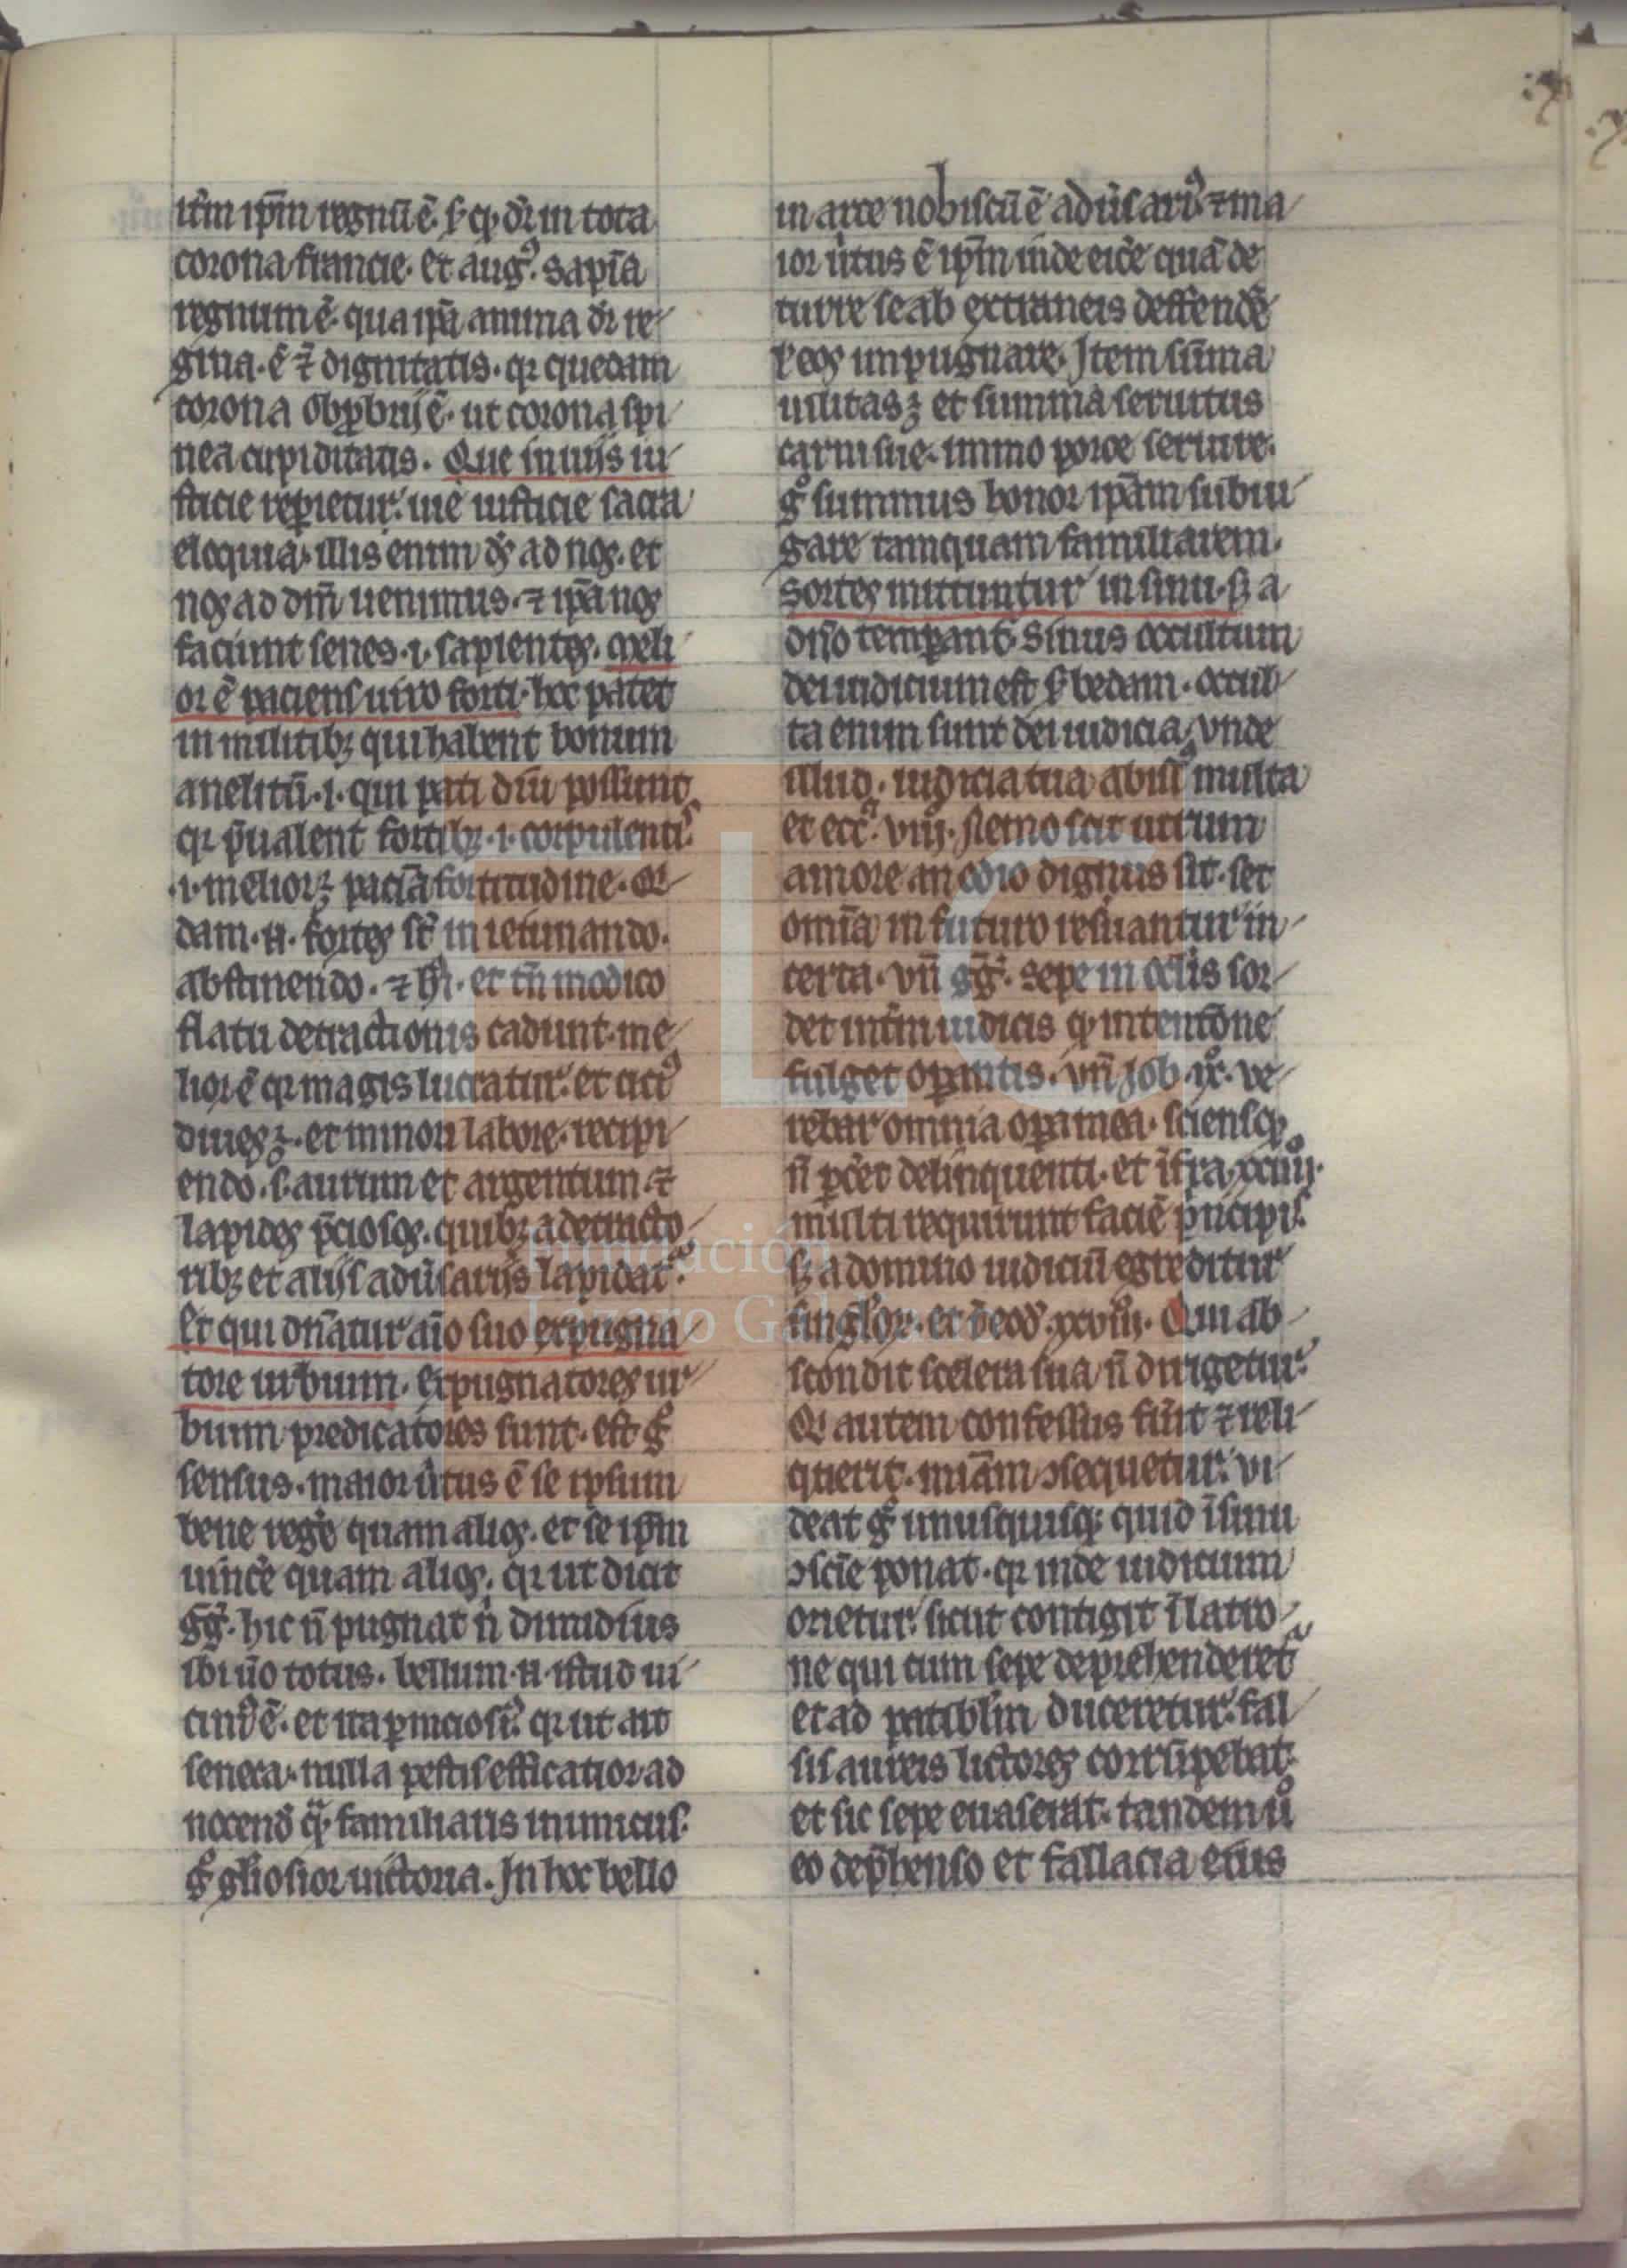 itĩm ip̃m regnũ ẽ. ẜ q̨ dr̃ in tota
corona francie. et aug᷒. sapĩa
regnum ẽ. qua ip̃a anima dr̃ re
gina. ẽ ⁊ dignitatis. qr quedam
corona obꝓbrij ẽ. ut corona spi
nea cupiditatis. Que in uijs iu
sticie reꝑietur. uie iusticie sacra
eloquia. illis enim ds̃ ad nos. et
nos ad dm̃ uenimus. ⁊ ip̃a nos
faciunt senes .i. sapientes. Meli
or ẽ paciens uiro forti. hoc patet
in militibꝫ qui habent bonum
anelitũ .i. qui pati diu possunt
qr p̃ualent fortibꝫ .i. corpulentis.
.i. meliorꝫ paciã fortitudine. Qi
dam .n. fortes st̃ in ieiunando.
abstinendo. ⁊ hi᷒. et tñ modico
flatu detractionis cadunt. me
lior ẽ qr magis lucratur. et citi᷒
diues ꝫ. et minori labore. recipi
endo .s. aurum et argentum ⁊
lapides p̃ciosos. quibꝫ a detracto
ribꝫ et alijs aduẽsarijs lapidat᷑.
Et qui dñatur aĩo suo expugna
tore urbium. Expugnatores ur
bium predicatores sunt. est gͦ
sensus. maior uĩtus ẽ se ipsum
bene regẽ quam alios. et se ip̃m
uincẽ quam alios. qr ut dicit
gg̃. hic ñ pugnat ñ dimidius
ibi uͦo totus. bellum .n. istud ui
cinũ ẽ. et ita ꝑniciosi᷒. qr ut ait
seneca. nulla pestis efficatior ad
nocend̃ q̃ familiaris inimicus.
gͦ gl̃iosior uictoria. In hoc bello
in arce nobiscũ ẽ aduẽsari᷒ ⁊ ma
ior uĩtus ẽ ip̃m inde eicẽ quã de
turre se ab extraneis deffendẽ
ł eos inpugnare. Item sũma
uilitas ꝫ et summa seruitus
carni sue. immo porce seruire.
gͦ summus honor ip̃am subiu
gare tamquam familiarem.
Sortes mittuntur in sinu. sꝫ a
dño temꝑant᷑. Sinus occultum
dei iudicium est ẜ bedam. occul
ta enim sunt dei iudicia. vnde
illud. iudicia tua abiss᷒ multa
et ecc̃. viij. Nemo scit utrum
amore an odio dignus sit. set
omĩa in futuro res̃uantur in
certa. vñ gg̃. sepe in oc̃lis sor
det int̃ni iudicis q̨ intentõne
fulget oꝑantis. vñ Job .ix. ve
rebar omnia oꝑa mea. sciens q̨
ñ ꝑcẽt delinquenti. et ĩfra .xxiiij.
multi requirunt faciẽ pͥncipis.
sꝫ a domino iudiciũ egreditur
sing̃loꝝ. et xxviij. Qui ab
scondit scelera sua ñ dirigetur.
Qi autem confessus fuĩt ⁊ reli
querit. miãm ↄsequetur. vi
deat gͦ unusquisqꝫ quid ĩ sinu
ↄscĩe ponat. qr inde iudicium
orietur. sicut contigit ĩ latro
ne qui cum sepe deprehenderet᷑
et ad patiblm̃ duceretur. fal
sis aureis lictores corrũpebat.
et sic sepe euaserat. tandem uͦ
eo dep̃henso et fallacia eius